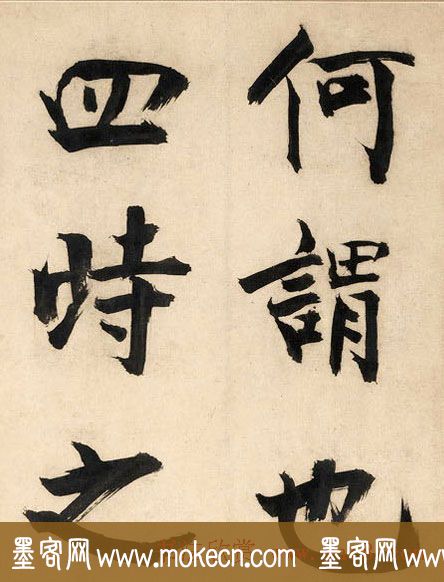 何謂也
四時之
墨客网 墨客网 墨客网
www.mokecn.com